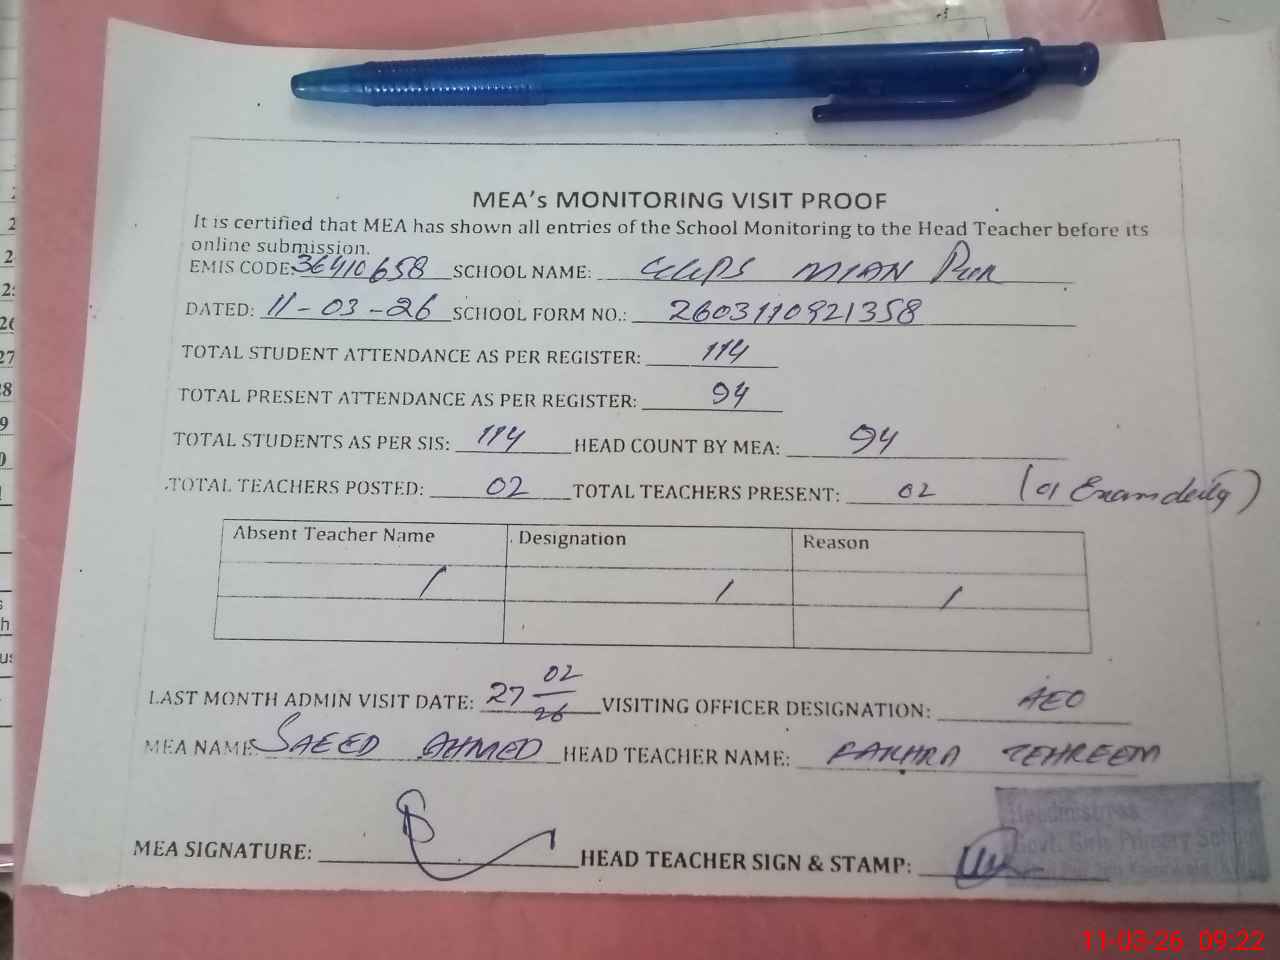 MEA's MONITORING VISIT PROOF
It is certified that MEA has shown all entries of the School Monitoring to the Head Teacher before its
online submission.
EMIS CODE: 36410658 SCHOOL NAME: GGPS MIAN PUR
DATED: 11-03-26 SCHOOL FORM NO.: 2603110921358
TOTAL STUDENT ATTENDANCE AS PER REGISTER: 114
TOTAL PRESENT ATTENDANCE AS PER REGISTER: 94
TOTAL STUDENTS AS PER SIS: 114 HEAD COUNT BY MEA: 94
TOTAL TEACHERS POSTED: 02 TOTAL TEACHERS PRESENT: 02 (01 Exam duty)
Absent Teacher Name Designation Reason
/ / /
LAST MONTH ADMIN VISIT DATE: 27 02/26 VISITING OFFICER DESIGNATION: AEO
MEA NAME: SAEED AHMED HEAD TEACHER NAME: FAKHRA TEHREEM
MEA SIGNATURE: HEAD TEACHER SIGN & STAMP:
Headmistress
Govt. Girls Primary School
11-03-26 09:22